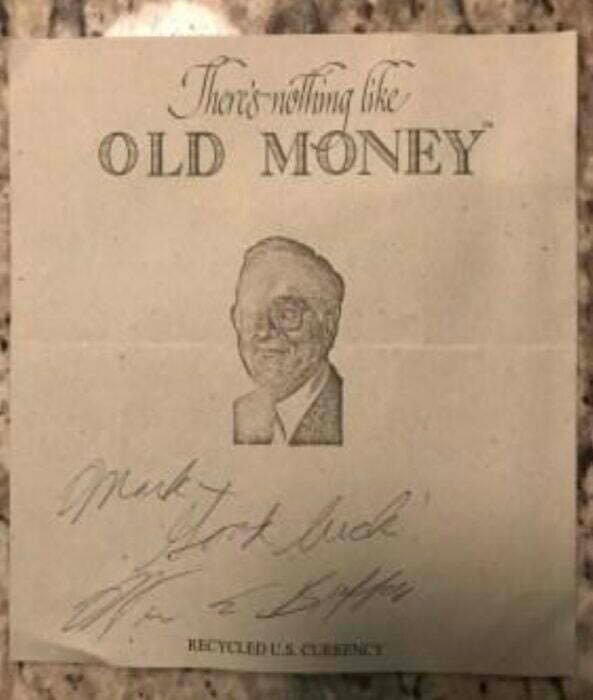 There's nothing like
OLD MONEY™
Mark
Good luck!
E. Buffett
RECYCLED U.S. CURRENCY